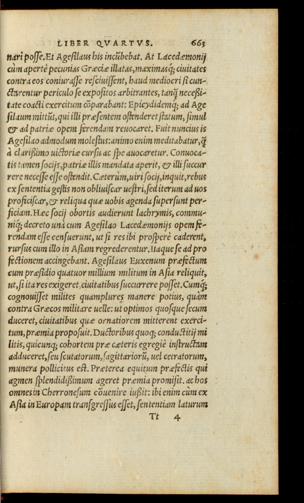 LIBER QVARTVS. 663
nari posse. Et Agesilaus his incũbebat. At Lacedæmonij
cùm apertè pecunias Græciæ illatas, maximasq́; ciuitates
contra eos coniurasse resciuissent, haud mediocri si cun-
ctarentur periculo se expositos arbitrantes, tanq̃ necessi-
tate coacti exercitum cõparabant: Epicydidemq́; ad Age
silaum mittũt, qui illi præsentem ostenderet statum, simul
& ad patriæ opem ferendam reuocaret. Fuit nuncius is
Agesilao admodum molestus: animo enim meditabatur, q̃
à clarissimo victoriæ cursu ac spe auocaretur. Conuoca-
tis tamen socijs, patriæ illis mandata aperit, & illi succur
rere necesse esse ostendit. Cæterùm, uiri socij, inquit, rebus
ex sententia gestis non obliuiscar uestri, sed iterum ad uos
proficiscar, & reliqua quæ uobis agenda supersunt per-
ficiam. Hæc socij obortis audierunt lachrymis, commu-
niq́; decreto unà cum Agesilao Lacedæmonijs opem fe-
rendam esse censuerunt, ut si res ibi prosperè caderent,
rursus cum illo in Asiam regrederentur, itaque se ad pro
fectionem accingebant. Agesilaus Euxenum præfectum
cum præsidio quatuor millium militum in Asia reliquit,
ut, si ita res exigeret, ciuitatibus succurrere posset. Cumq́;
cognouisset milites quamplures manere potius, quàm
contra Græcos militare uelle: ut optimos quosque secum
duceret, ciuitatibus quæ ornatiorem mitterent exerci-
tum, præmia proposuit. Ductoribus quoq́; conductitij mi
litis, quicunq́; cohortem præ cæteris egregiè instructam
adduceret, seu scutatorum, sagittariorũ, uel cetratorum,
munera pollicitus est. Præterea equitum præfectis qui
agmen splendidissimum ageret præmia promisit, ac hos
omnes in Cherronesum cõuenire iußit: ibi enim cùm ex
Asia in Europam transgressus esset, sententiam laturum
Tt 4